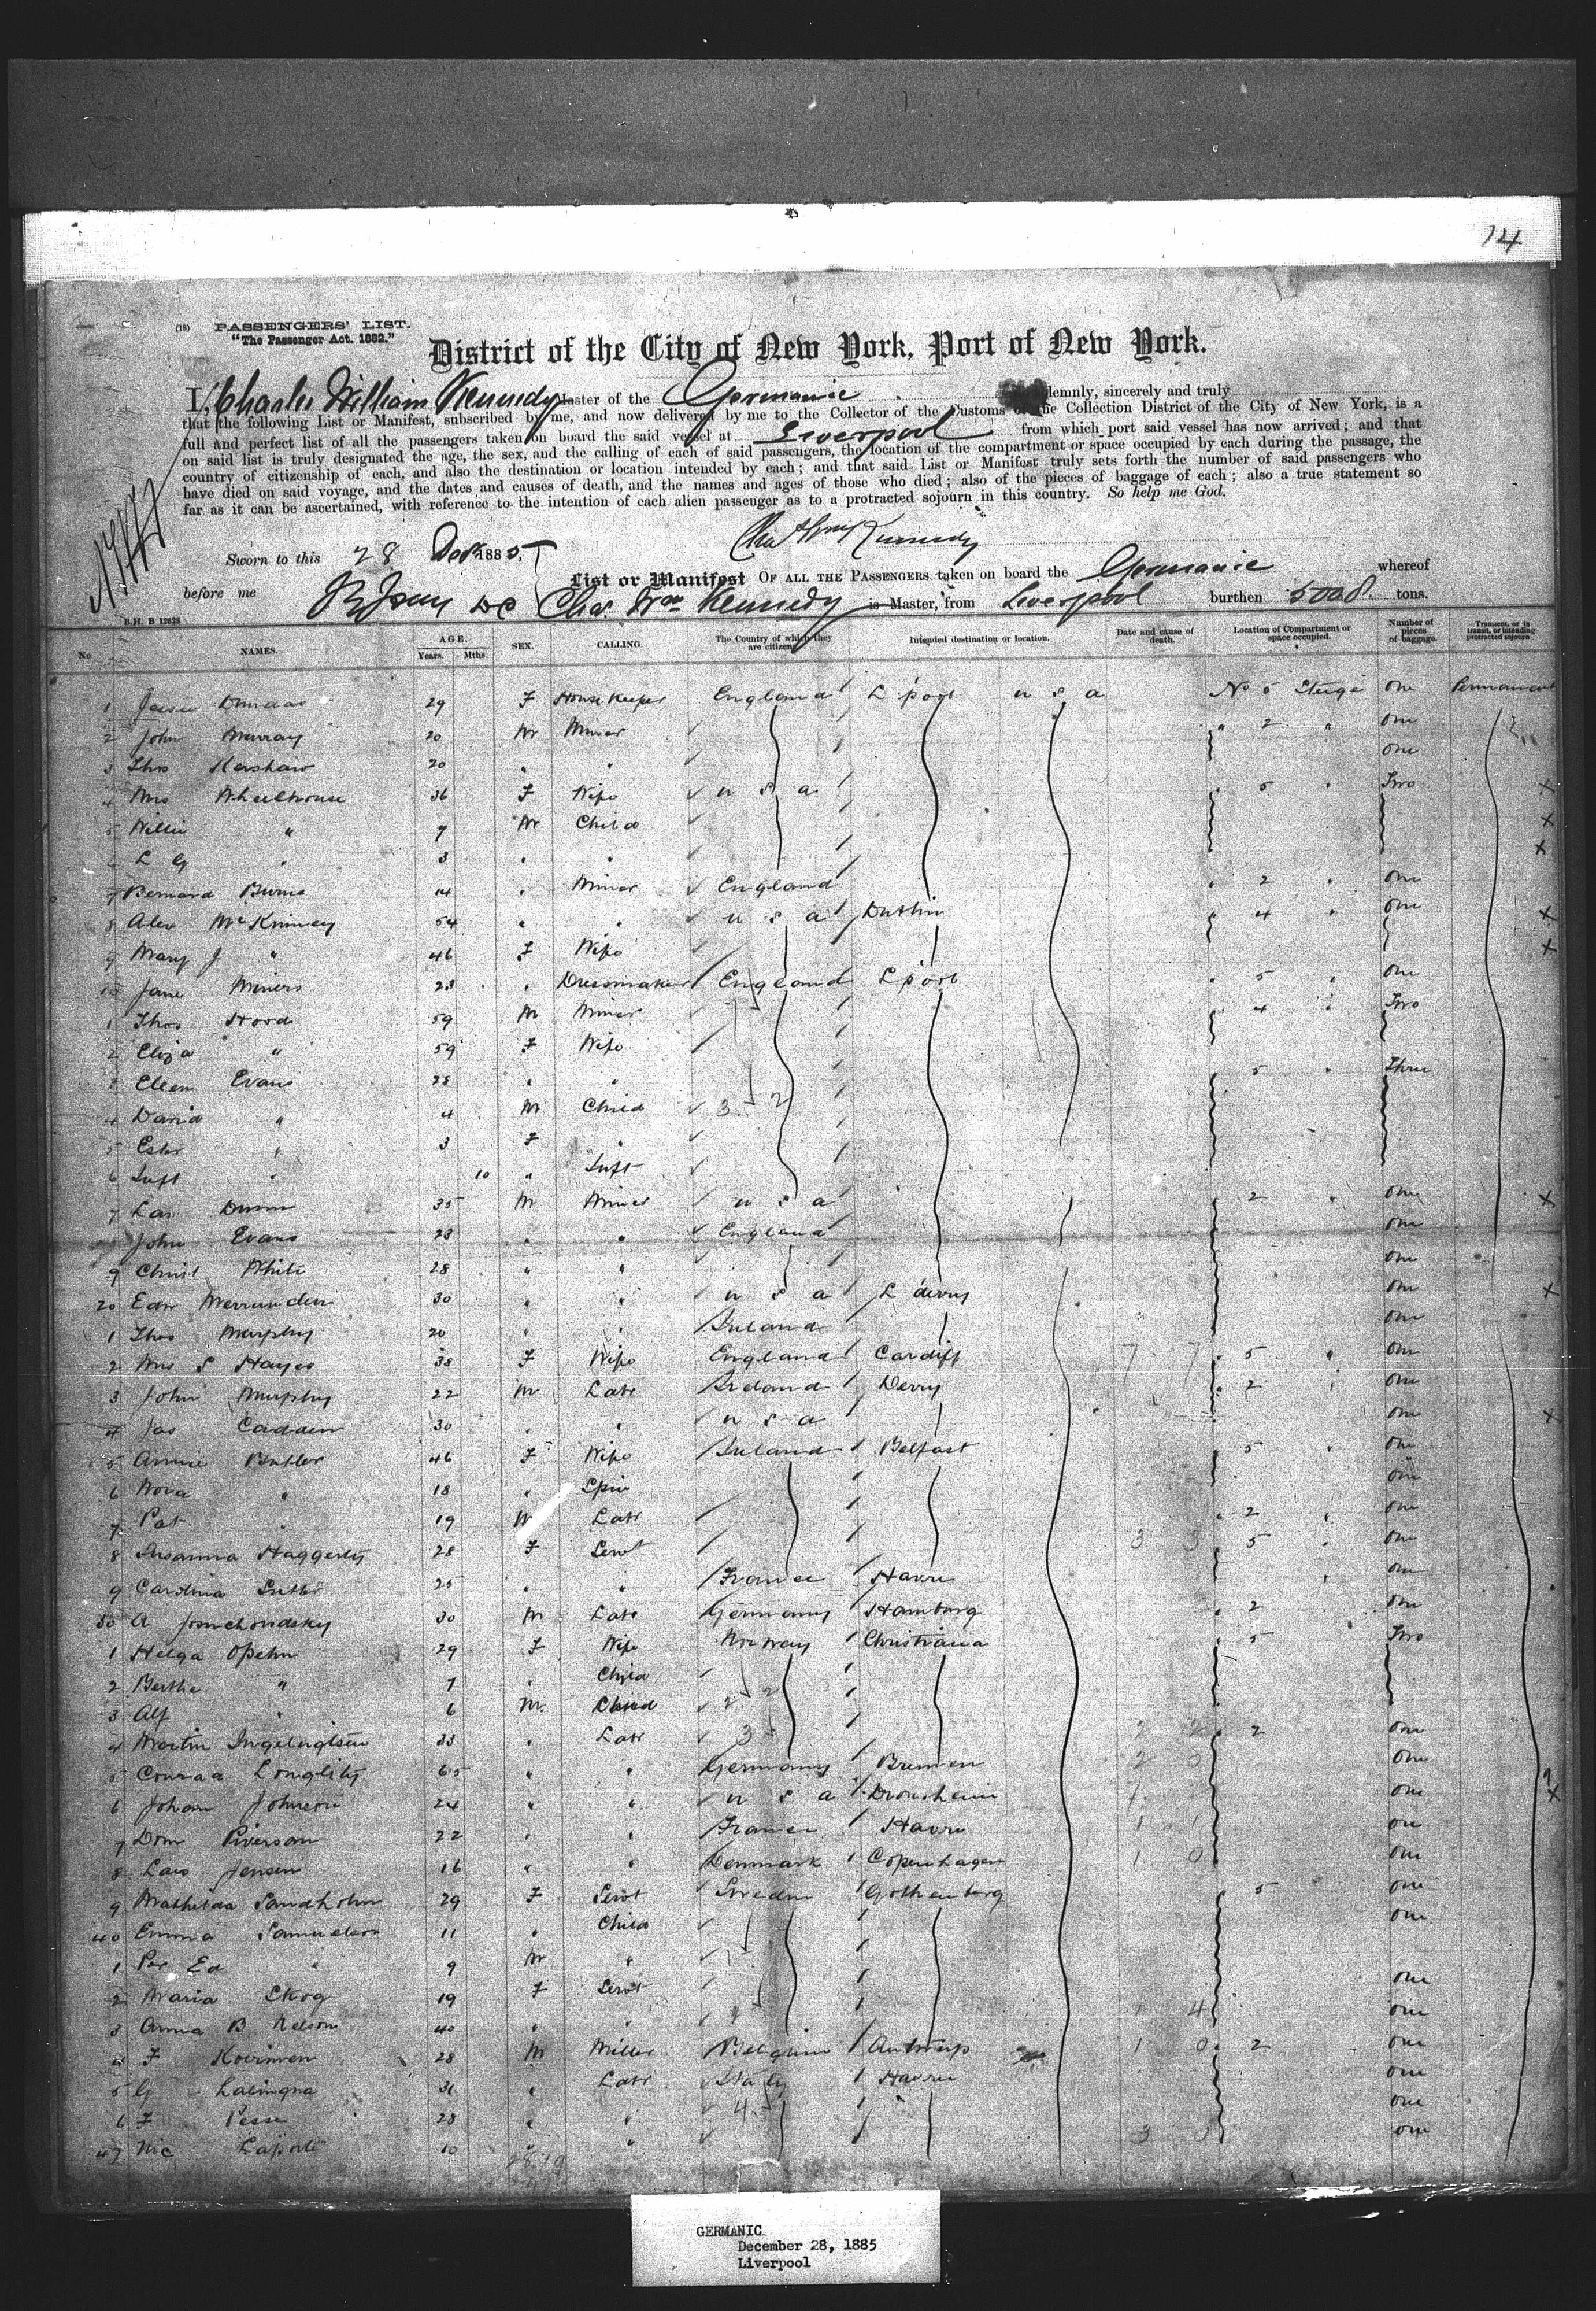 14
(18) PASSENGERS' LIST.
"The Passenger Act. 1882."
District of the City of New York, Port of New York.
I, Charles William Kennedy Master of the Germanic solemnly, sincerely and truly
that the following List or Manifest, subscribed by me, and now delivered by me to the Collector of the Customs of the Collection District of the City of New York, is a
full and perfect list of all the passengers taken on board the said vessel at Liverpool from which port said vessel has now arrived; and that
on said list is truly designated the age, the sex, and the calling of each of said passengers, the location of the compartment or space occupied by each during the passage, the
country of citizenship of each, and also the destination or location intended by each; and that said List or Manifest truly sets forth the number of said passengers who
have died on said voyage, and the dates and causes of death, and the names and ages of those who died; also of the pieces of baggage of each; also a true statement so
far as it can be ascertained, with reference to the intention of each alien passenger as to a protracted sojourn in this country. So help me God.
Chas Wm Kennedy
Sworn to this 28 Dec 1885,
List or Manifest OF ALL THE PASSENGERS taken on board the Germanic whereof
before me Chas. Wm Kennedy is Master, from Liverpool burthen 5008 tons.
B.H. B 12628
No NAMES. AGE. Years. Mths. SEX. CALLING. The Country of which they are citizens. Intended destination or location. Date and cause of death. Location of Compartment or space occupied. Number of pieces of baggage. Transient, or in transit, or intending protracted sojourn
1 Jessie Dundas 29 F House Keeper England L'pool u s a No 5 Steige one Permanent
2 John Murray 20 M Miner " 2 " one
3 Thos Kershaw 20 " " one
4 Mrs Wheelhouse 36 F Wife u s a 5 " Two x
5 Willie " 7 M Child x
6 L G " 3 " " x
7 Bernard Burns 14 " Miner England " 2 " one
8 Alex McKinney 54 " " u s a Dublin " 4 " one x
9 Mary J " 46 F Wife x
10 Jane Miners 23 " Dressmaker England L'pool " 5 " one
1 Thos Hood 59 M Miner 4 " Two
2 Eliza " 59 F Wife
3 Ellen Evans 28 " " 5 " Three
4 David " 4 M Child
5 Ester " 3 F "
6 Inft " 10 " Inft
7 Lar Dunn 35 M Miner u s a 2 " one x
8 John Evans 23 " " England one
9 Christ White 28 " " one
20 Edw 30 " " u s a L'derry one x
1 Thos Murphy 20 " " Ireland one
2 Mrs S Hayes 38 F Wife England Cardiff 5 " one
3 John Murphy 22 M Labr Ireland Derry 2 " one
4 Jas Cadden 30 " " u s a one x
5 Annie Butler 46 F Wife Ireland Belfast 5 " one
6 Nora " 18 " Spin one
7 Pat " 19 M Labr " 2 " one
8 Susanna Haggerty 28 F Servt 5 " one
9 Carolina Sutter 25 " " France Havre one
30 A 30 M Labr Germany Hamburg " 2 one
1 Helga Opehn 29 F Wife Norway Christiana " 5 Two
2 Berthe " 7 " Child
3 Alf " 6 M. Child
4 Martin 33 " Labr 2 one
5 Conrad 65 " " Germany Bremen one
6 Johan Johnson 24 " " u s a Dronsheim one x
7 Dom Piverson 22 " " France Havre one
8 Lars Jensen 16 " " Denmark Copenhagen one
9 Mathilda Sandholm 29 F Servt Sweden Gothenburg 5 one
40 Emma Samuelson 11 " Child one
1 Per Ed " 9 M "
2 Maria Skog 19 F Servt one
3 Anna B Nelson 40 " " one
4 F 28 M Miller Belgium Antwerp 2 one
5 G Labingna 31 " Labr Italy Havre one
6 F Pesse 28 " " " one
47 Nic Laporte 10 " " one
GERMANIC
December 28, 1885
Liverpool